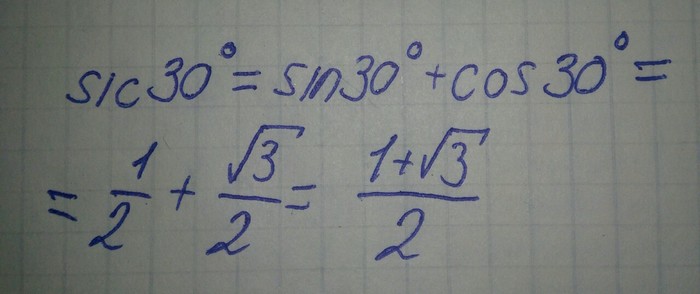 sic30° = sin30° + cos30° =
= 1/2 + √3/2 = (1+√3)/2